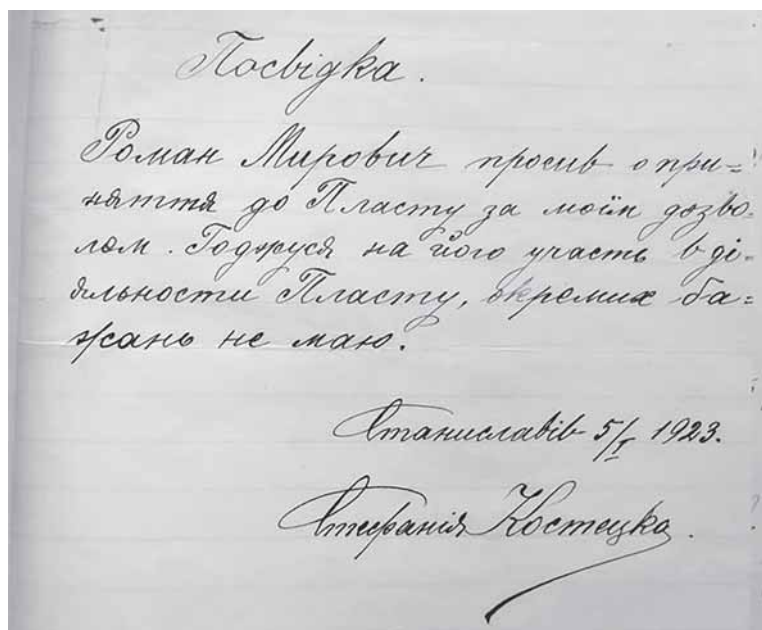 Посвідка.
Роман Мирович просив о при=
няття до Пласту за моїм дозво-
лом. Годжуся на його участь в ді-
яльности Пласту, окремих ба=
жань не маю.
Станиславів 5/I 1923.
Стефанія Костецка.